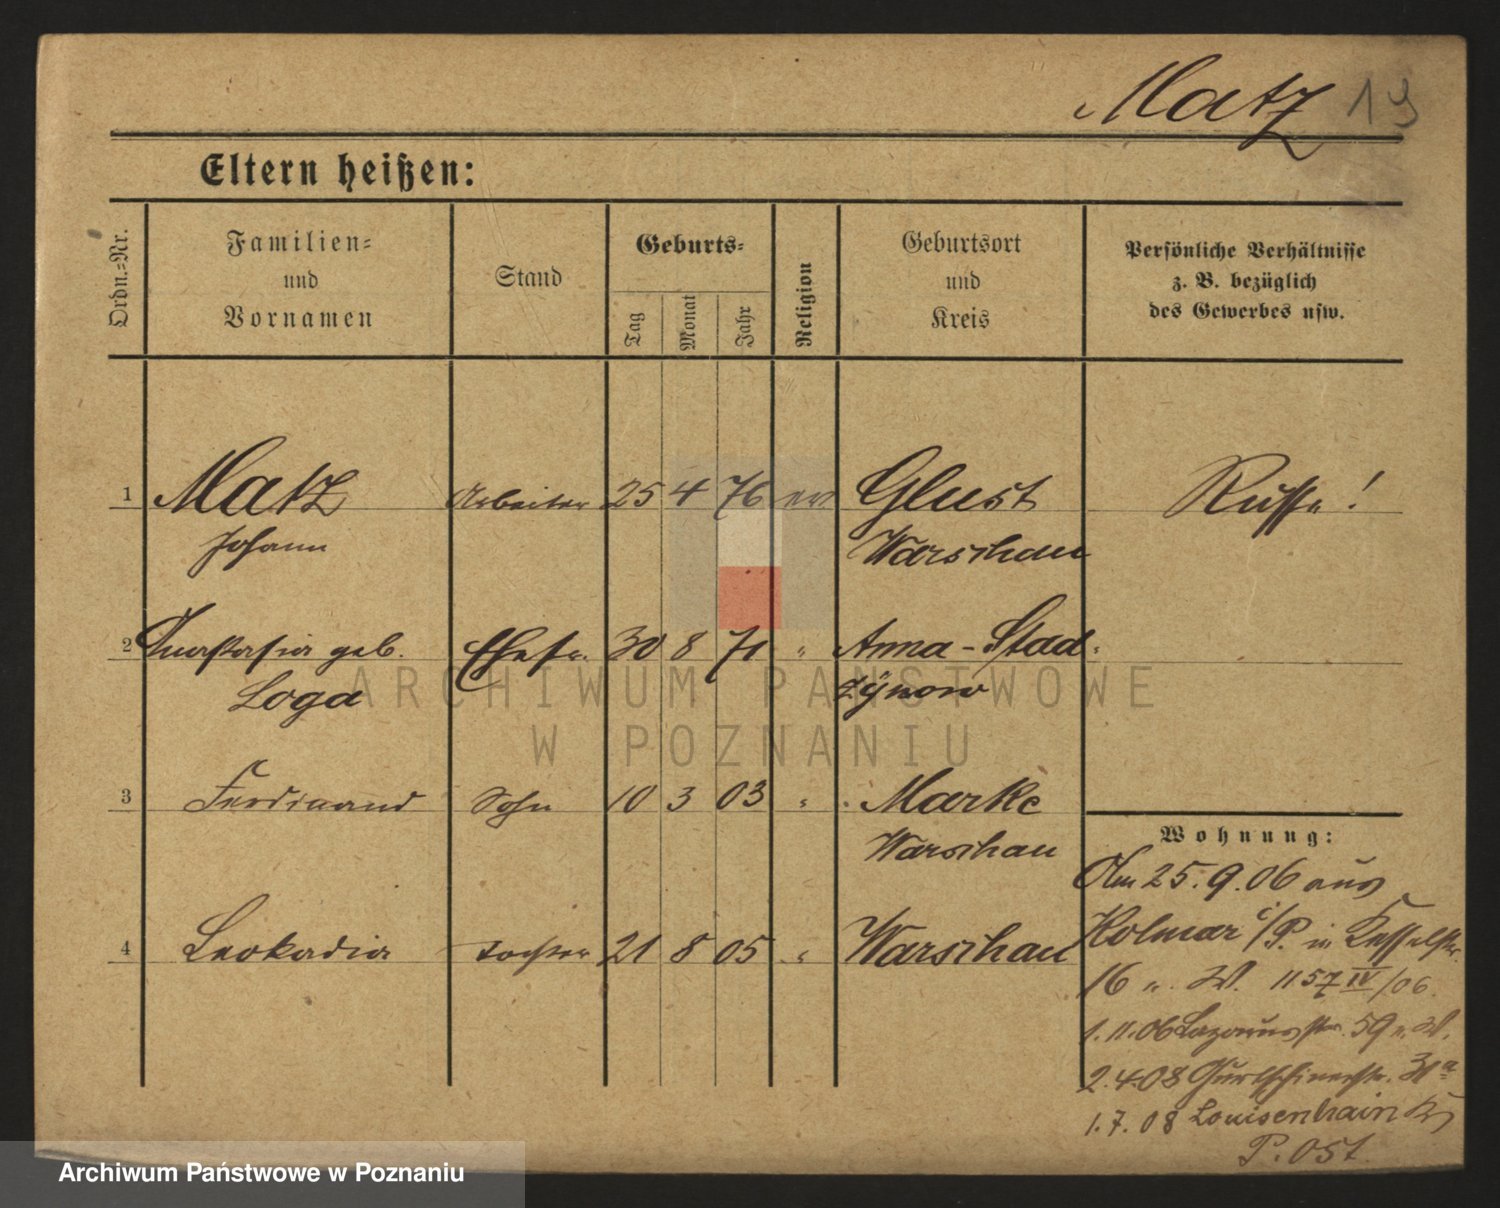 Matz 19
Eltern heißen:
Ordn.=Nr.
Familien=
und
Vornamen
Stand
Geburts=
Tag
Monat
Jahr
Religion
Geburtsort
und
Kreis
Persönliche Verhältnisse
z. B. bezüglich
des Gewerbes usw.
1 Matz Arbeiter 25 4 76 ev Glust Russe!
Johann Warschau
2 Anastasia geb. Ehefr. 30 8 71 " Anna-Stad
Loga
3 Ferdinand Sohn 10 3 03 " Marke
Warschau
4 Leokadia Tochter 21 8 05 " Warschau
Wohnung:
Am 25.9.06 aus
Kolmar i/P. in Kesselstr.
16 " W. 1157 IV/06.
1.11.06 Lazarusstr. 59 W.
2.4.08 Gurtschinerstr. 31a
1.7.08 Louisenhain Kr
P. Ost
ARCHIWUM PAŃSTWOWE
W POZNANIU
Archiwum Państwowe w Poznaniu